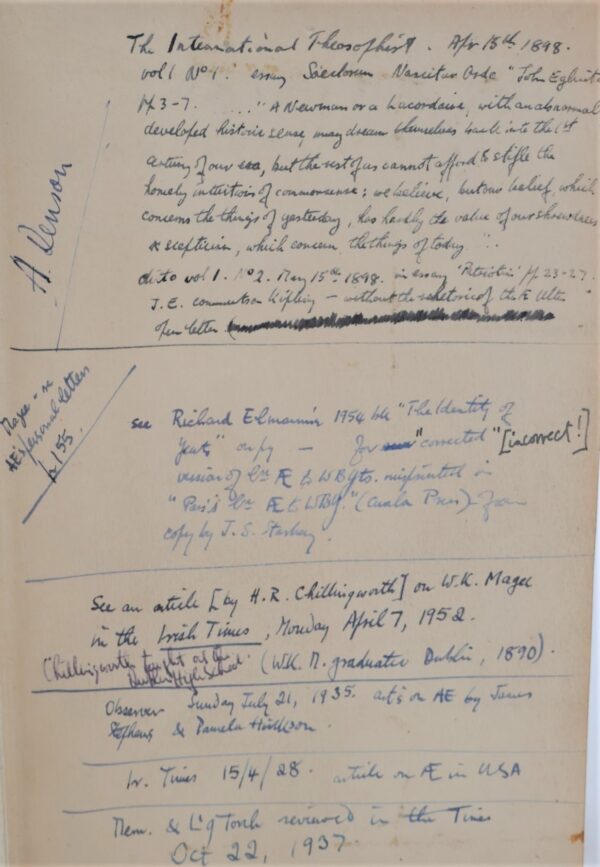 The International Theosophist. Apr 15th 1898.
vol 1 No 1. essay Saeclorum Nascitur Ordo "John Eglint
pp. 3-7. ...." A Newman or a Lacordaire, with an abnormal
developed historic sense, may dream themselves back into the 1st
century of our era, but the rest of us cannot afford to stifle the
homely intuitions of commonsense: we believe, but our belief, which
concerns the things of yesterday, has hardly the value of our shrewdness
& scepticism, which concern the things of today".
ditto vol 1. No 2. May 15th 1898. in essay 'Patriotism' pp 23-27.
J.E. comments on Kipling — without the rhetoric of the Æ Ulster
open letter
A. Denson
Magee - re
AE's personal letters
p 155.
see Richard Ellmann's 1954 bk "The Identity of
Yeats" only — for "corrected" [incorrect!]
version of ltr Æ to WBYts. misprinted in
"Pass's ltr Æ to WBY." (Cuala Press) from
copy by J.S. Starkey.
See an article [by H.R. Chillingworth] on W.K. Magee
in the Irish Times, Monday April 7, 1952.
Chillingworth taught at the
Dublin High School.
(W.K. M. graduated Dublin, 1890).
Observer Sunday July 21, 1935. art's on AE by James
Stephens & Pamela Hinkson.
Ir. Times 15/4/28. article on Æ in USA
Mem. & L'g Torch reviewed in the Times
Oct 22, 1937.